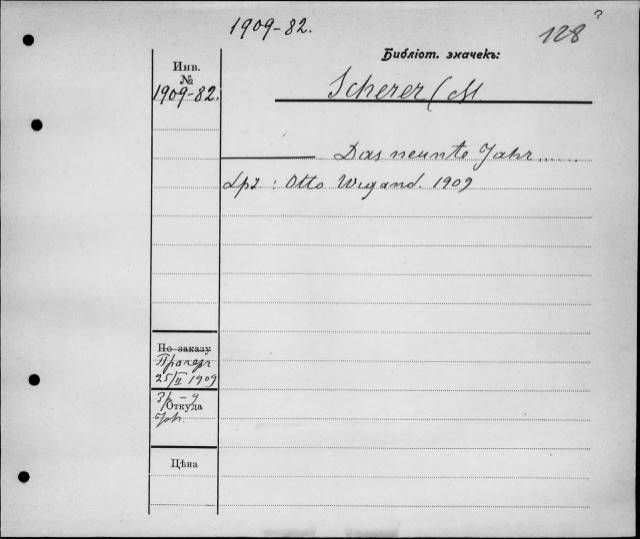 1909-82.
128
?
Библіот. значекъ:
Инв.
№
1909-82.
Scherer (M.
Das neunte Jahr......
Lpz : Otto Wigand. 1909
По заказу
25/II 1909
Откуда
Цѣна